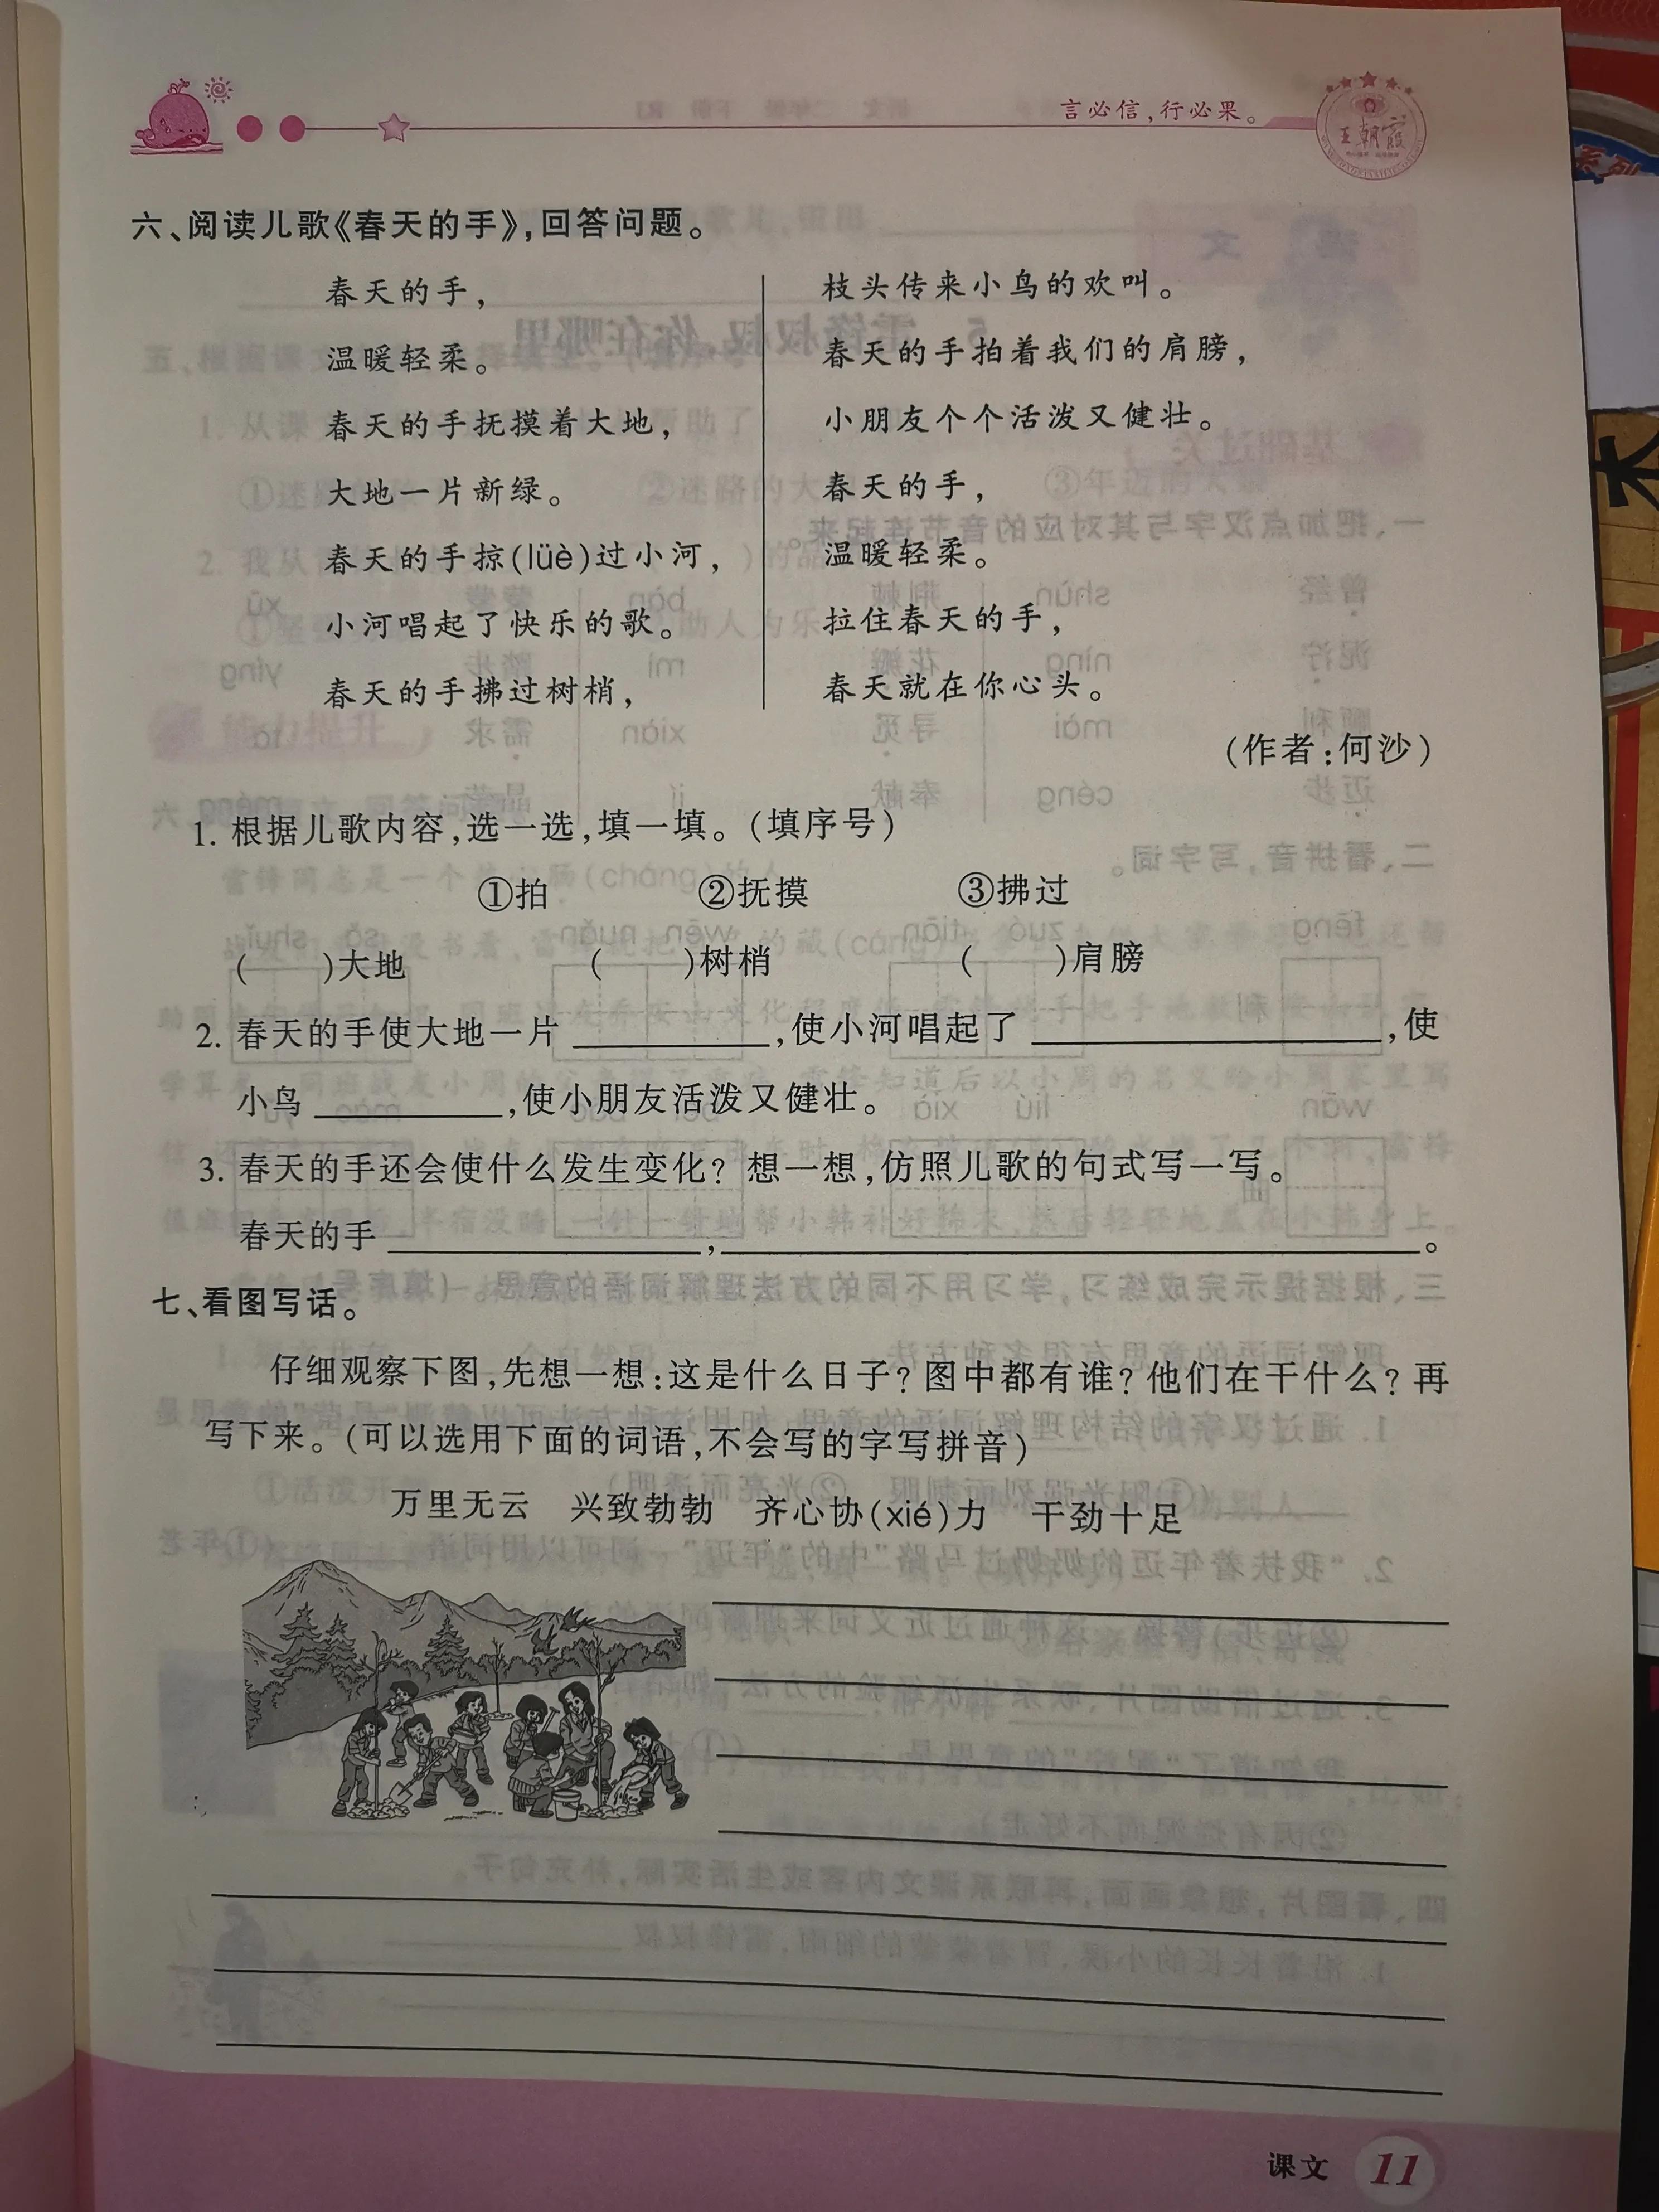 言必信,行必果。
王朝霞
系列
六、阅读儿歌《春天的手》,回答问题。
春天的手,
温暖轻柔。
春天的手抚摸着大地,
大地一片新绿。
春天的手掠(lüè)过小河,
小河唱起了快乐的歌。
春天的手拂过树梢,
枝头传来小鸟的欢叫。
春天的手拍着我们的肩膀,
小朋友个个活泼又健壮。
春天的手,
温暖轻柔。
拉住春天的手,
春天就在你心头。
(作者:何沙)
1. 根据儿歌内容,选一选,填一填。(填序号)
①拍 ②抚摸 ③拂过
( )大地 ( )树梢 ( )肩膀
2. 春天的手使大地一片________,使小河唱起了________,使
小鸟________,使小朋友活泼又健壮。
3. 春天的手还会使什么发生变化?想一想,仿照儿歌的句式写一写。
春天的手________,________。
七、看图写话。
仔细观察下图,先想一想:这是什么日子?图中都有谁?他们在干什么?再
写下来。(可以选用下面的词语,不会写的字写拼音)
万里无云 兴致勃勃 齐心协(xié)力 干劲十足
课文 11